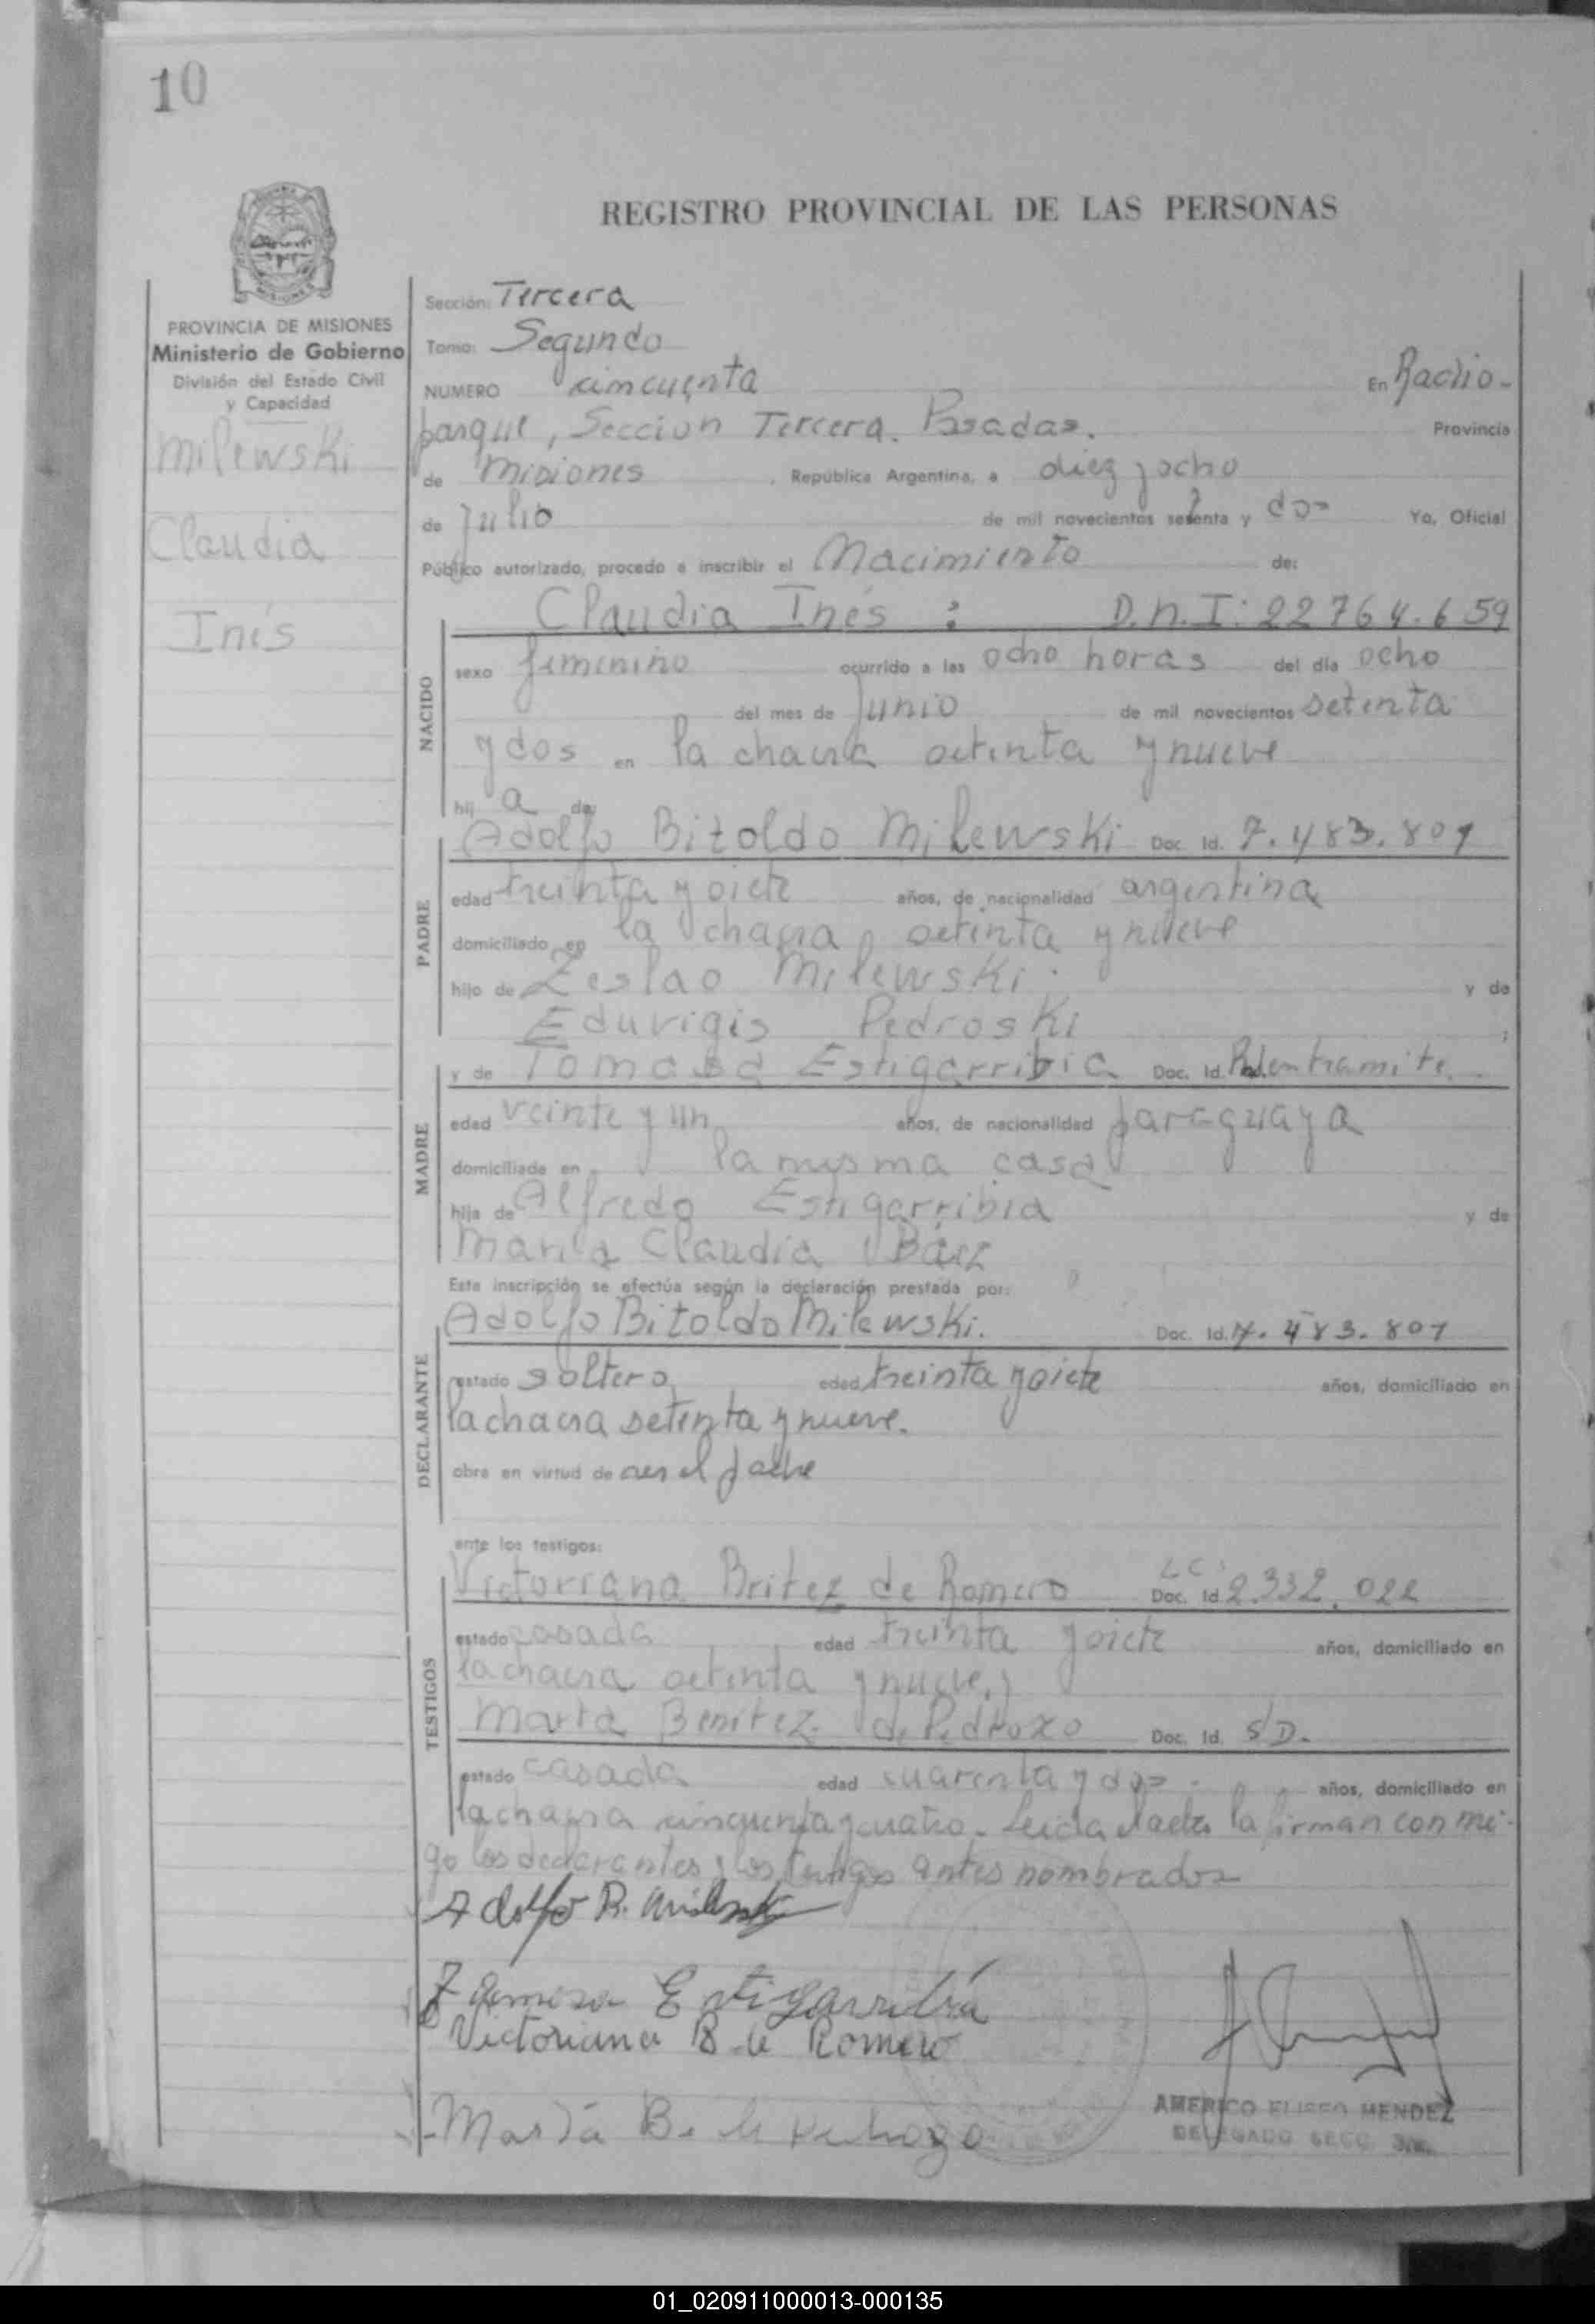 10
REGISTRO PROVINCIAL DE LAS PERSONAS
PROVINCIA DE MISIONES
Ministerio de Gobierno
División del Estado Civil
y Capacidad
Milewski
Claudia
Inés
Sección: Tercera
Tomo: Segundo
NUMERO cincuenta En Radio-
parque, Seccion Tercera. Posadas. Provincia
de Misiones, República Argentina, a diez y ocho
de Julio de mil novecientos setenta y dos Yo, Oficial
Público autorizado, procedo a inscribir el Nacimiento de:
Claudia Inés : D.N.I: 22764.659
NACIDO
sexo femenino ocurrido a las ocho horas del día ocho
del mes de Junio de mil novecientos setenta
y dos en la chacra setenta y nueve
hij a de:
Adolfo Bitoldo Milewski Doc. Id. 7.483.801
PADRE
edad treinta y siete años, de nacionalidad argentina
domiciliado en la chacra setenta y nueve
hijo de Zeslao Milewski. y de
Eduvigis Pedroski ;
y de Tomasa Estigarribia Doc. Id. en tramite.
MADRE
edad veinte y un años, de nacionalidad paraguaya
domiciliada en la misma casa
hija de Alfredo Estigarribia y de
Maria Claudia Báez
Esta inscripción se efectúa según la declaración prestada por:
Adolfo Bitoldo Milewski. Doc. Id. 7.483.801
DECLARANTE
estado soltero edad treinta y siete años, domiciliado en
la chacra setenta y nueve.
obra en virtud de ser el padre
ante los testigos:
Victoriana Britez de Romero L C. Doc. Id. 2.332.022
TESTIGOS
estado casada edad treinta y siete años, domiciliado en
la chacra setenta y nueve, y
Marta Benitez de Pedrozo Doc. Id. S/D.
estado casada edad cuarenta y dos años, domiciliado en
la chacra cincuenta y cuatro. Leida el acta la firman con mi-
go los declarantes y los testigos antes nombrados
Adolfo B. Milewski
Tomasa Estigarribia
Victoriana B de Romero
Marta B. de Pedrozo
AMERICO ELISEO MENDEZ
DELEGADO SECC. 3ra.
01_020911000013-000135